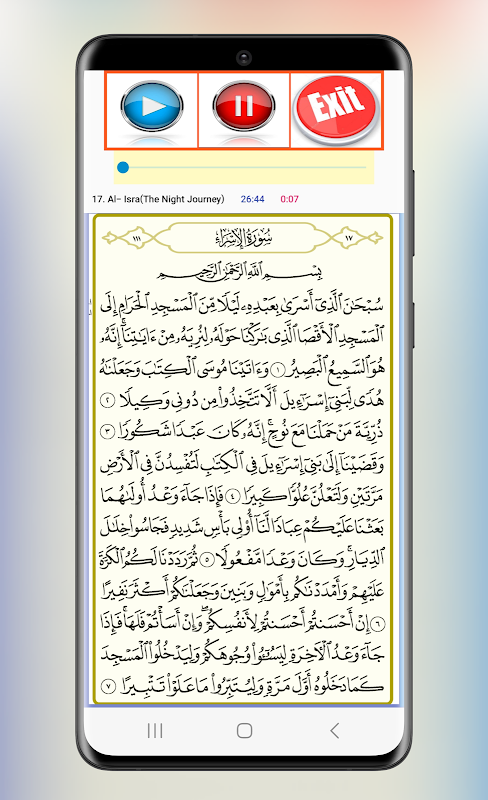 Exit
17. Al- Isra(The Night Journey) 26:44 0:07
١١١ سُورَةُ الإِسْرَاءِ ١٧
بِسْمِ اللَّهِ الرَّحْمَٰنِ الرَّحِيمِ
سُبْحَٰنَ الَّذِىٓ أَسْرَىٰ بِعَبْدِهِۦ لَيْلًا مِّنَ الْمَسْجِدِ الْحَرَامِ إِلَى
الْمَسْجِدِ الْأَقْصَا الَّذِى بَٰرَكْنَا حَوْلَهُۥ لِنُرِيَهُۥ مِنْ ءَايَٰتِنَآ ۚ إِنَّهُۥ
هُوَ السَّمِيعُ الْبَصِيرُ ١ وَءَاتَيْنَا مُوسَى الْكِتَٰبَ وَجَعَلْنَٰهُ
هُدًى لِّبَنِىٓ إِسْرَٰٓءِيلَ أَلَّا تَتَّخِذُوا۟ مِن دُونِى وَكِيلًا ٢
ذُرِّيَّةَ مَنْ حَمَلْنَا مَعَ نُوحٍ ۚ إِنَّهُۥ كَانَ عَبْدًا شَكُورًا ٣
وَقَضَيْنَآ إِلَىٰ بَنِىٓ إِسْرَٰٓءِيلَ فِى الْكِتَٰبِ لَتُفْسِدُنَّ فِى الْأَرْضِ
مَرَّتَيْنِ وَلَتَعْلُنَّ عُلُوًّا كَبِيرًا ٤ فَإِذَا جَآءَ وَعْدُ أُولَىٰهُمَا
بَعَثْنَا عَلَيْكُمْ عِبَادًا لَّنَآ أُو۟لِى بَأْسٍ شَدِيدٍ فَجَاسُوا۟ خِلَٰلَ
الدِّيَارِ ۚ وَكَانَ وَعْدًا مَّفْعُولًا ٥ ثُمَّ رَدَدْنَا لَكُمُ الْكَرَّةَ
عَلَيْهِمْ وَأَمْدَدْنَٰكُم بِأَمْوَٰلٍ وَبَنِينَ وَجَعَلْنَٰكُمْ أَكْثَرَ نَفِيرًا
٦ إِنْ أَحْسَنتُمْ أَحْسَنتُمْ لِأَنفُسِكُمْ ۖ وَإِنْ أَسَأْتُمْ فَلَهَا ۚ فَإِذَا
جَآءَ وَعْدُ الْءَاخِرَةِ لِيَسُۥٓـُٔوا۟ وُجُوهَكُمْ وَلِيَدْخُلُوا۟ الْمَسْجِدَ
كَمَا دَخَلُوهُ أَوَّلَ مَرَّةٍ وَلِيُتَبِّرُوا۟ مَا عَلَوْا۟ تَتْبِيرًا ٧